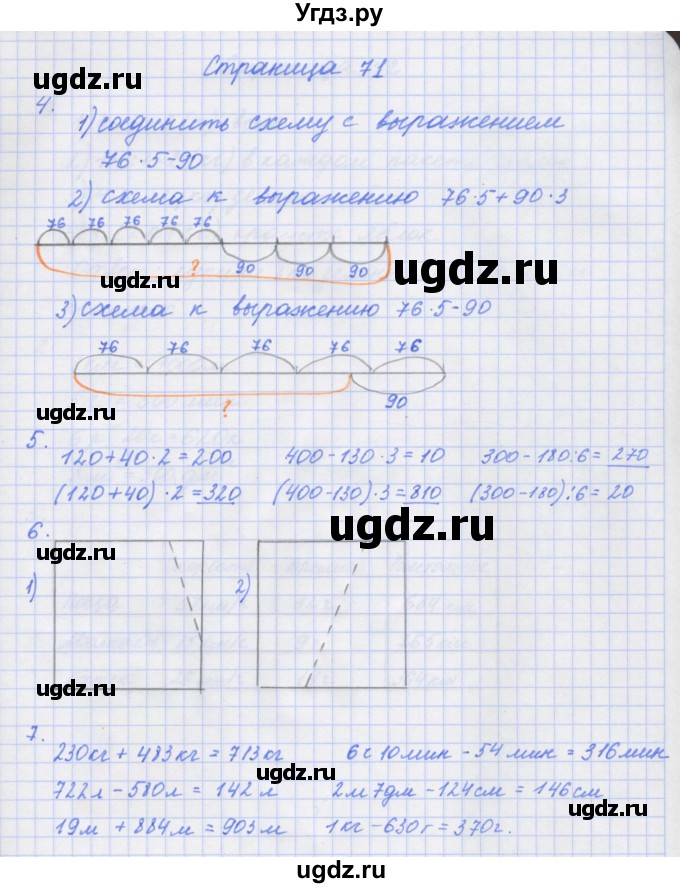 Угдз.ру
Страница 71
ugdz.ru
ugdz.ru
4.
1) соединить схему с выражением
76·5-90
ugdz.ru
2) схема к выражению 76·5+90·3
76 76 76 76 76
? 90 90 90
ugdz.ru
3) схема к выражению 76·5-90
76 76 76 76 76
? 90
ugdz.ru
5.
120+40·2=200 400-130·3=10 300-180:6=270
(120+40)·2=320 (400-130)·3=810 (300-180):6=20
ugdz.ru
ugdz.ru
6.
1) 2)
ugdz.ru
ugdz.ru
7.
230кг + 483кг = 713кг 6с 10мин - 54мин = 316мин
ugdz.ru
722л - 580л = 142л 2м 7дм - 124см = 146см
19м + 884м = 903м 1кг - 630г = 370г.
ugdz.ru
ugdz.ru